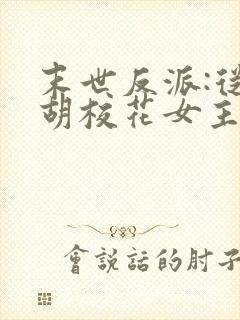 末世反派:從
胡校花女主
會說話的肘子